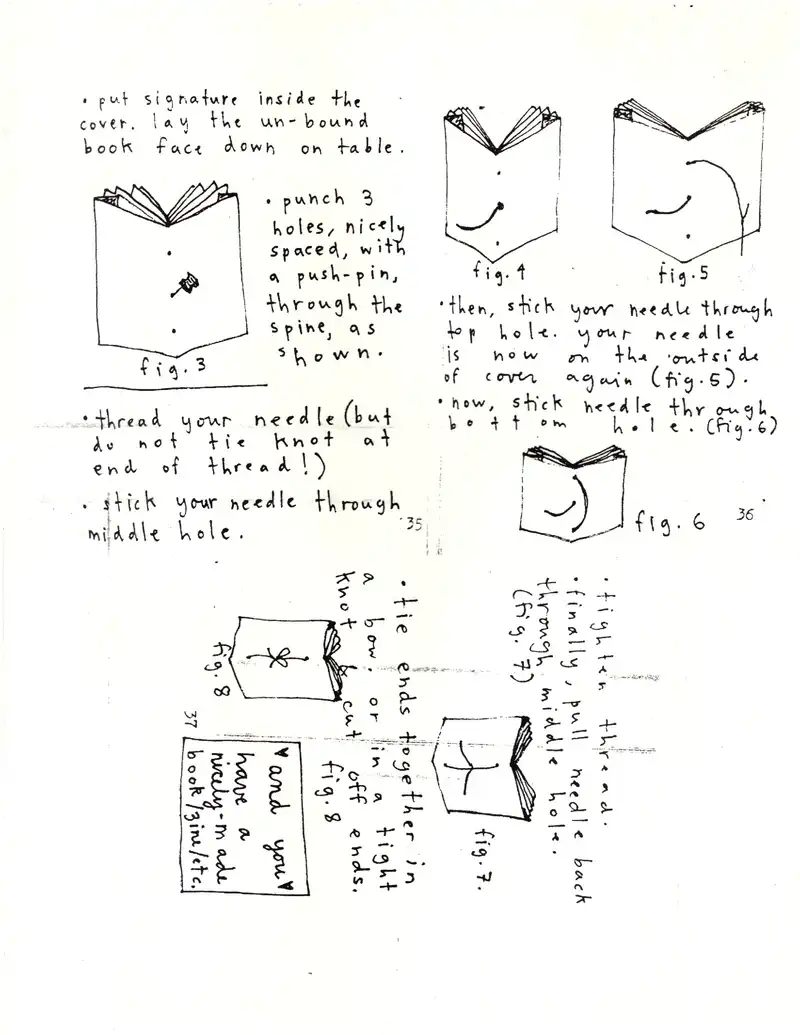 • put signature inside the
cover. lay the un-bound
book face down on table.
• punch 3
holes, nicely
spaced, with
a push-pin,
through the
spine, as
shown.
fig. 3
• thread your needle (but
do not tie knot at
end of thread!)
• stick your needle through
middle hole.
35
fig. 4
fig. 5
• then, stick your needle through
top hole. your needle
is now on the outside
of cover again (fig. 5).
• now, stick needle through
bottom hole. (fig. 6)
fig. 6
36
• tighten thread.
• finally, pull needle back
through middle hole.
(fig. 7)
fig. 7.
• tie ends together in
a bow. or in a tight
knot & cut off ends.
fig. 8
fig. 8
♥ and you ♥
have a
nicely-made
book/zine/etc.
37